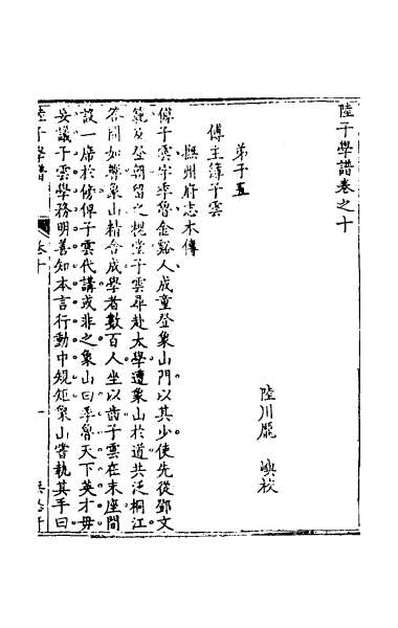 陸子學譜卷之十
陸川龐嶼校
弟子五
傅主簿子雲
撫州府志本傳
傅子雲字季魯金谿人成童登象山門以其少使先從鄧文
範及登朝留之槐堂子雲尋赴太學遭象山於道共泛桐江
答問如響象山精合成學者數百人坐以齒子雲在末座間
設一席於傍俾子雲代講或非之象山曰季魯天下英才毋
妄議子雲學務明善知本言行動中規矩象山嘗執其手曰
陸子學譜
卷十
一